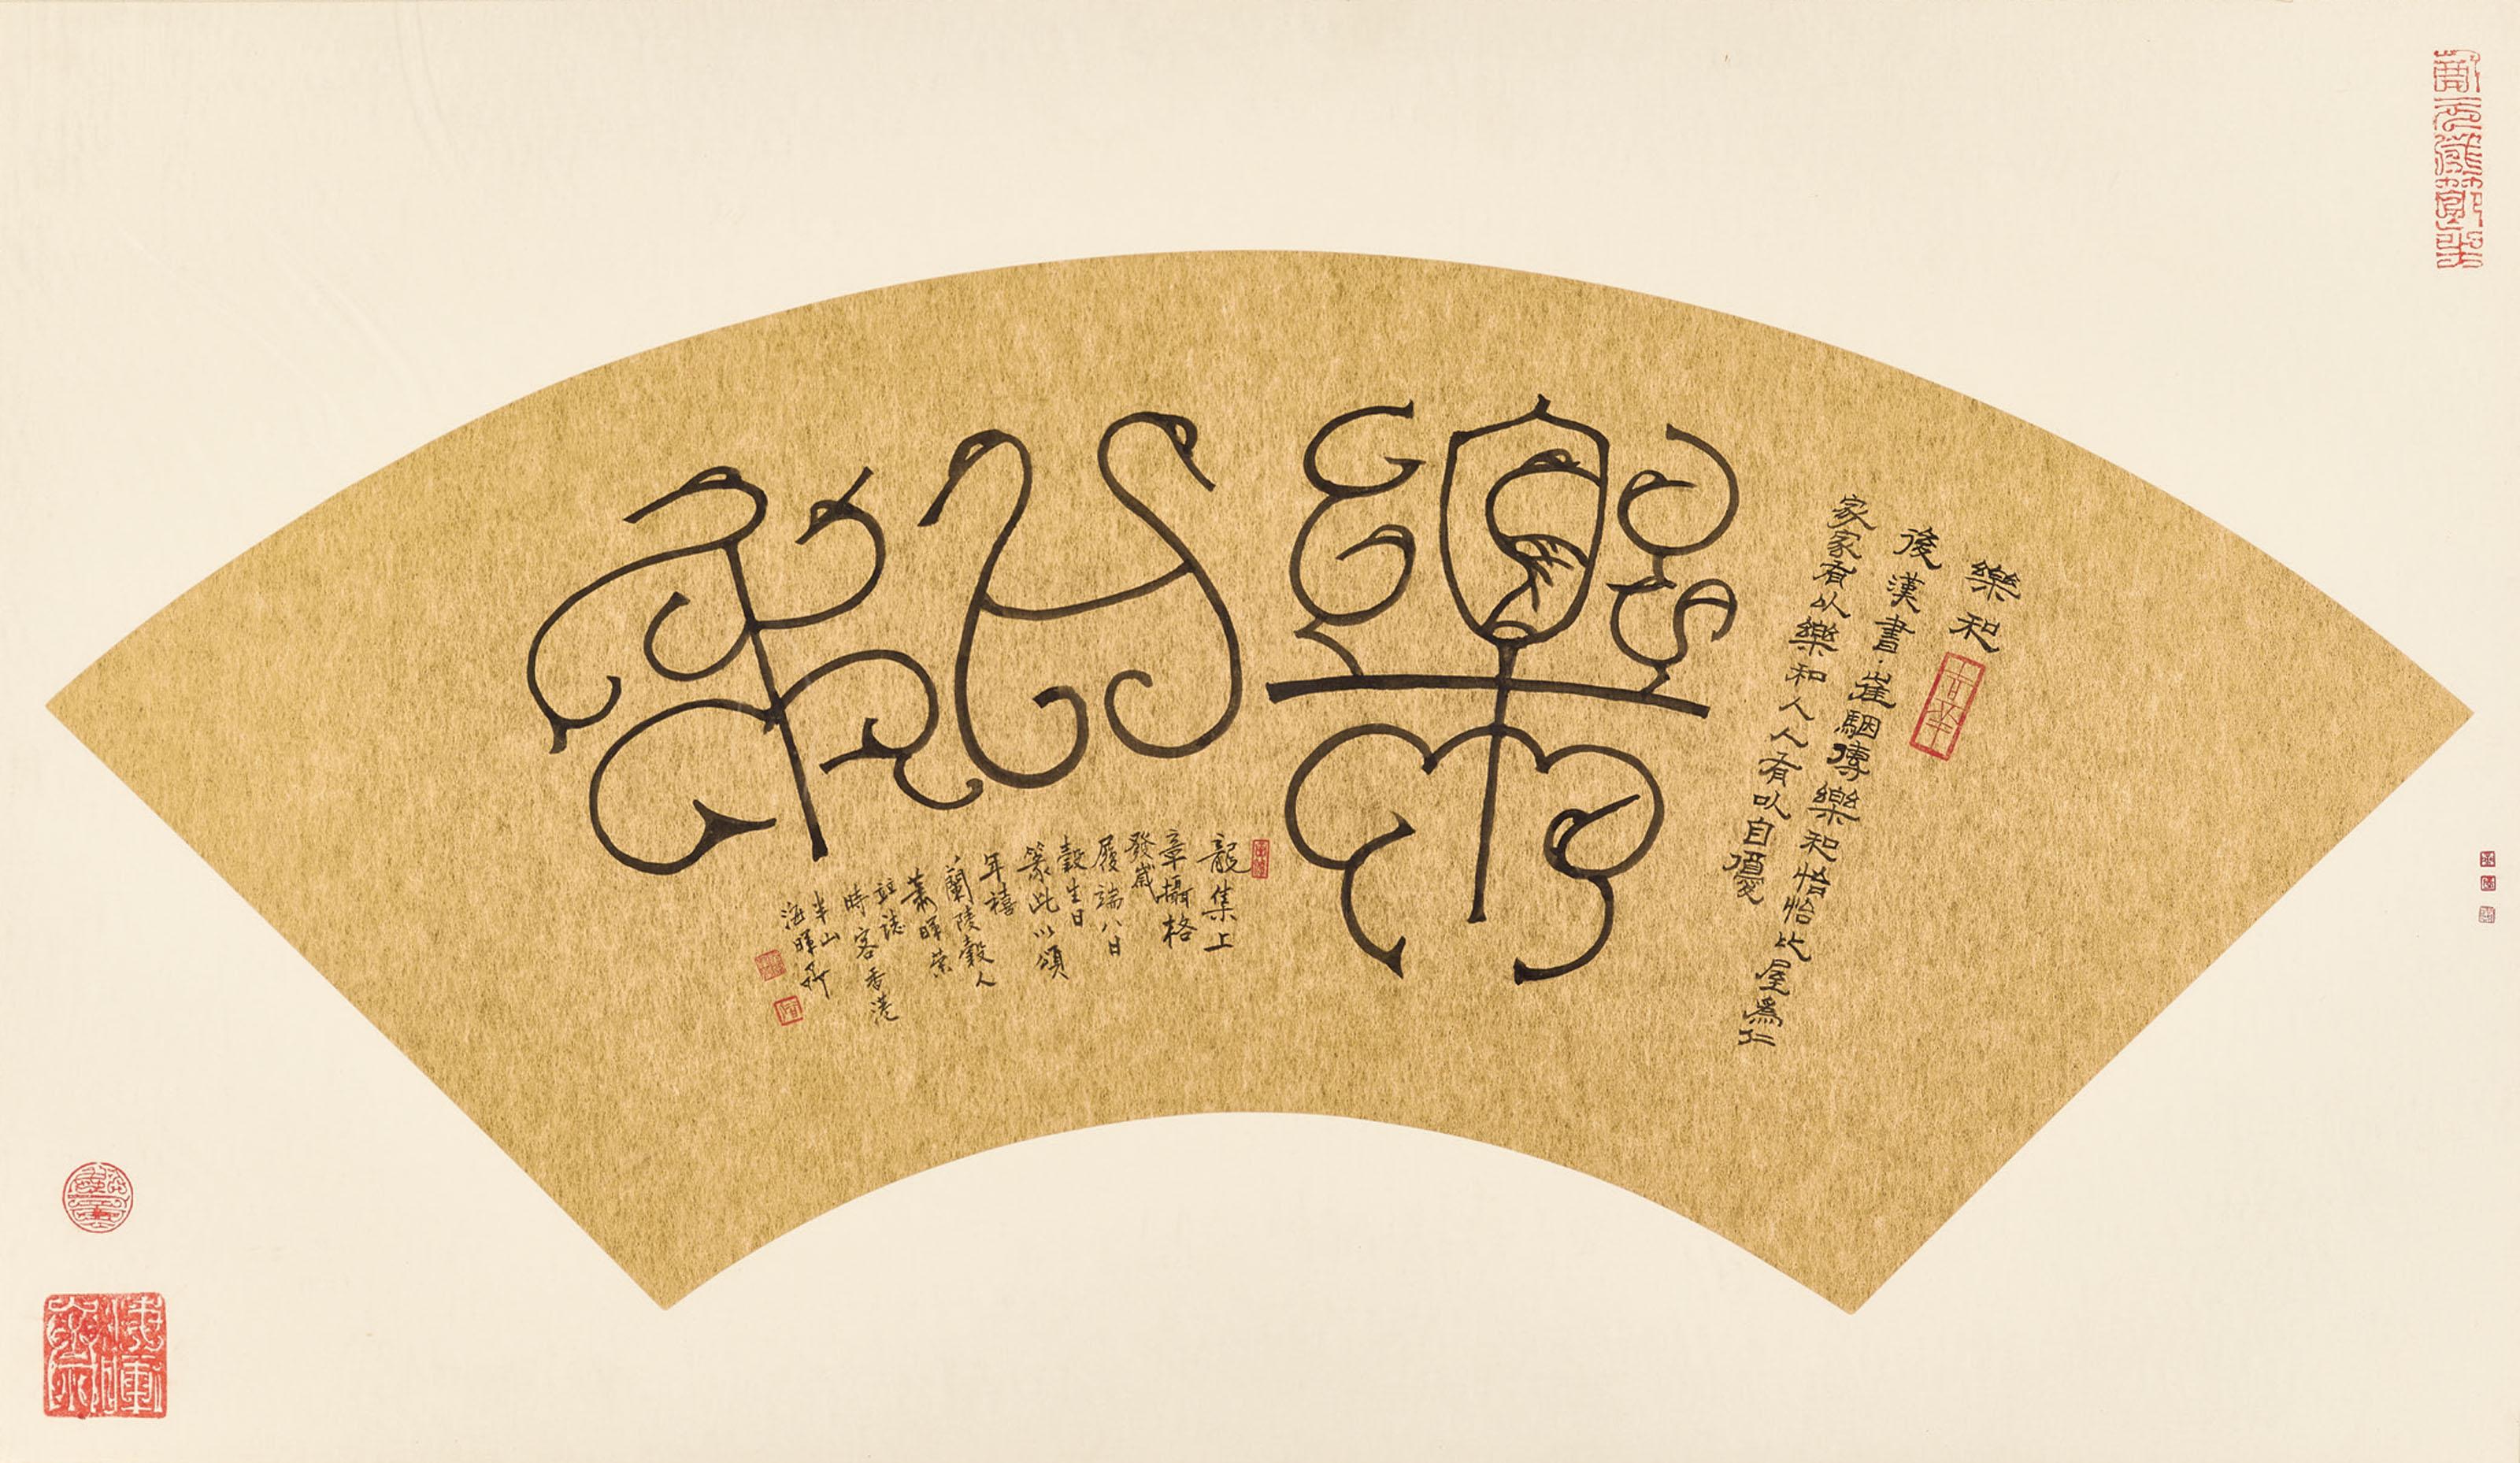 樂和
樂和
後漢書·崔駰傳樂和怡怡比屋為仁
家家有以樂和人人有以自優
龍集上
章攝格
發歲
履端八日
穀生日
篆此以頌
年禧
蘭陵穀人
蕭暉榮
並誌
時客香港
半山
海暉